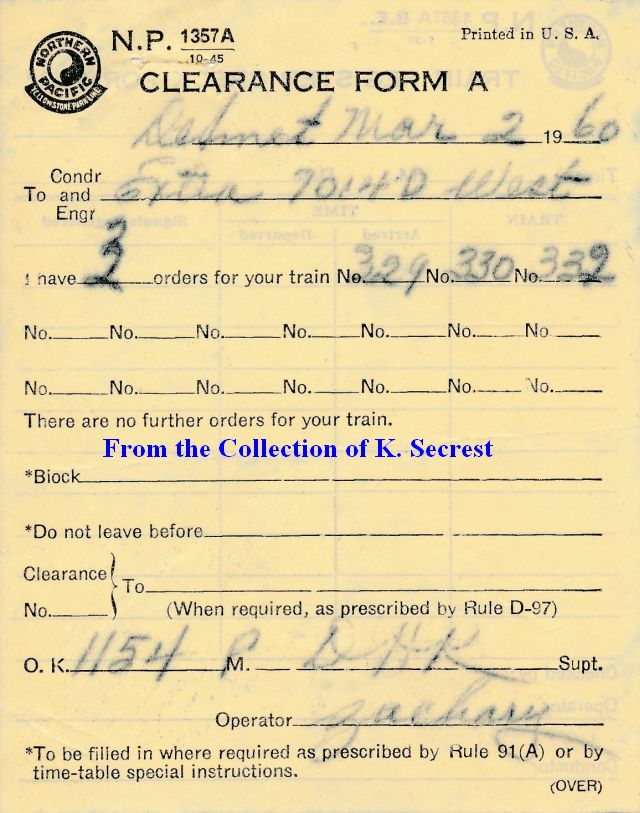 NORTHERN PACIFIC
YELLOWSTONE PARK LINE
N.P. 1357A
10-45
Printed in U. S. A.
CLEARANCE FORM A
Mar 2 1960
Condr
To and Extra 7014D West
Engr
I have 3 orders for your train No. 329 No. 330 No. 339
No. No. No. No. No. No. No.
No. No. No. No. No. No. No.
There are no further orders for your train.
From the Collection of K. Secrest
*Block
*Do not leave before
Clearance To
No. (When required, as prescribed by Rule D-97)
O. K. 1154 P M. DHK Supt.
Operator Zachary
*To be filled in where required as prescribed by Rule 91(A) or by
time-table special instructions.
(OVER)